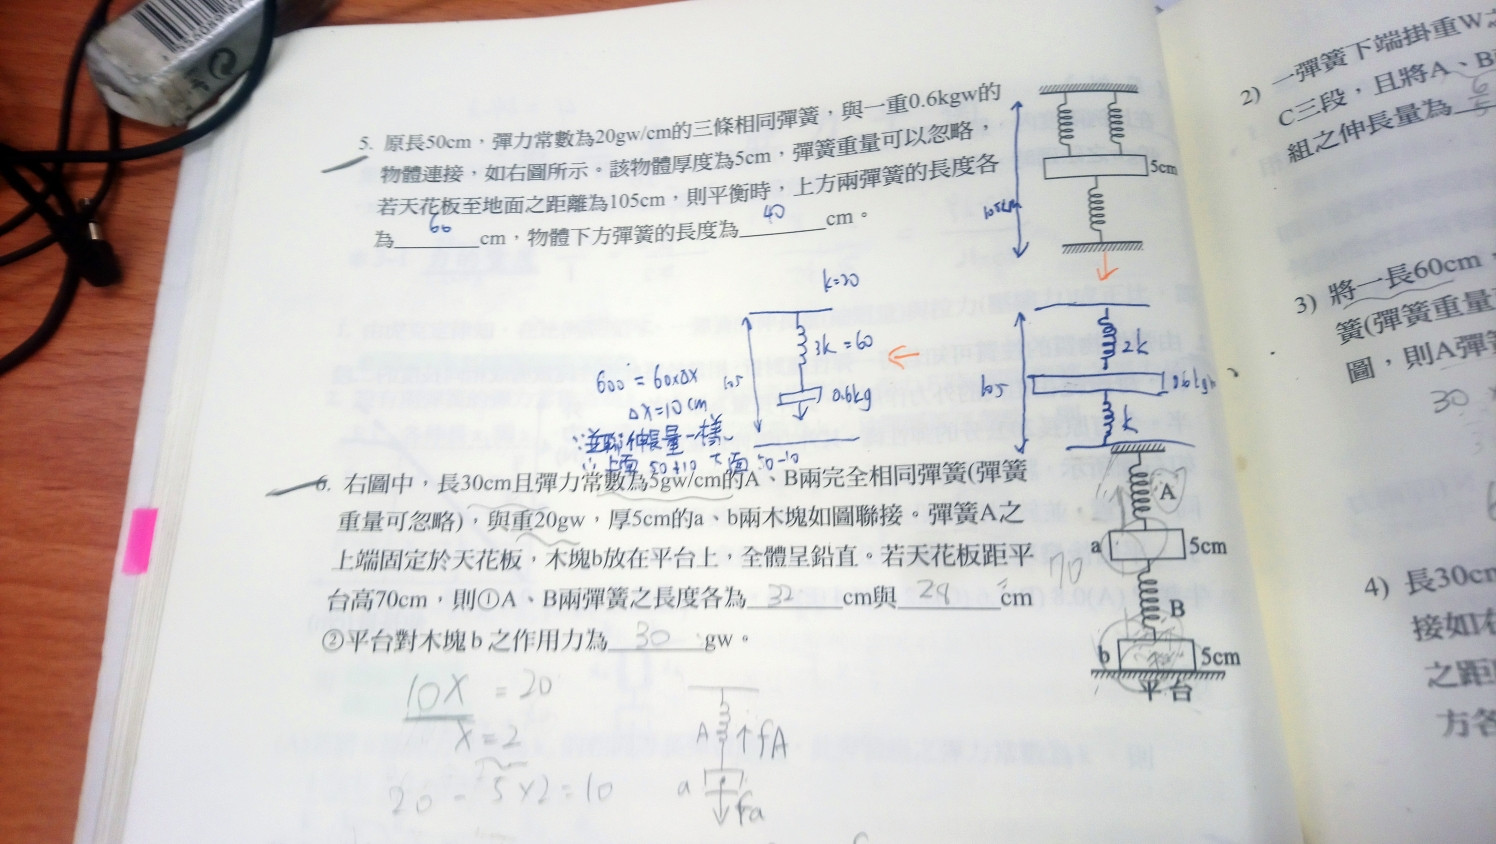 5. 原長50cm，彈力常數為20gw/cm的三條相同彈簧，與一重0.6kgw的
物體連接，如右圖所示。該物體厚度為5cm，彈簧重量可以忽略，
若天花板至地面之距離為105cm，則平衡時，上方兩彈簧的長度各
為 60 cm，物體下方彈簧的長度為 40 cm。
5cm
105cm
k=20
3k=60
0.6kg
105
600 = 60xΔx
Δx=10cm
∵並聯伸長量一樣
∴上面 50+10 下面 50-10
105
2k
0.6kgw
k
6. 右圖中，長30cm且彈力常數為5gw/cm的A、B兩完全相同彈簧(彈簧
重量可忽略)，與重20gw，厚5cm的a、b兩木塊如圖聯接。彈簧A之
上端固定於天花板，木塊b放在平台上，全體呈鉛直。若天花板距平
台高70cm，則①A、B兩彈簧之長度各為 32 cm與 28 cm
②平台對木塊b之作用力為 30 gw。
A
a
5cm
70
B
b
5cm
平台
10X = 20
X=2
20 - 5x2=10
A
fA
a
fa
2) 一彈簧下端掛重W
C三段，且將A、B
組之伸長量為
6
5
3) 將一長60cm
簧(彈簧重量
圖，則A彈
30
4) 長30cm
接如
之距
方各